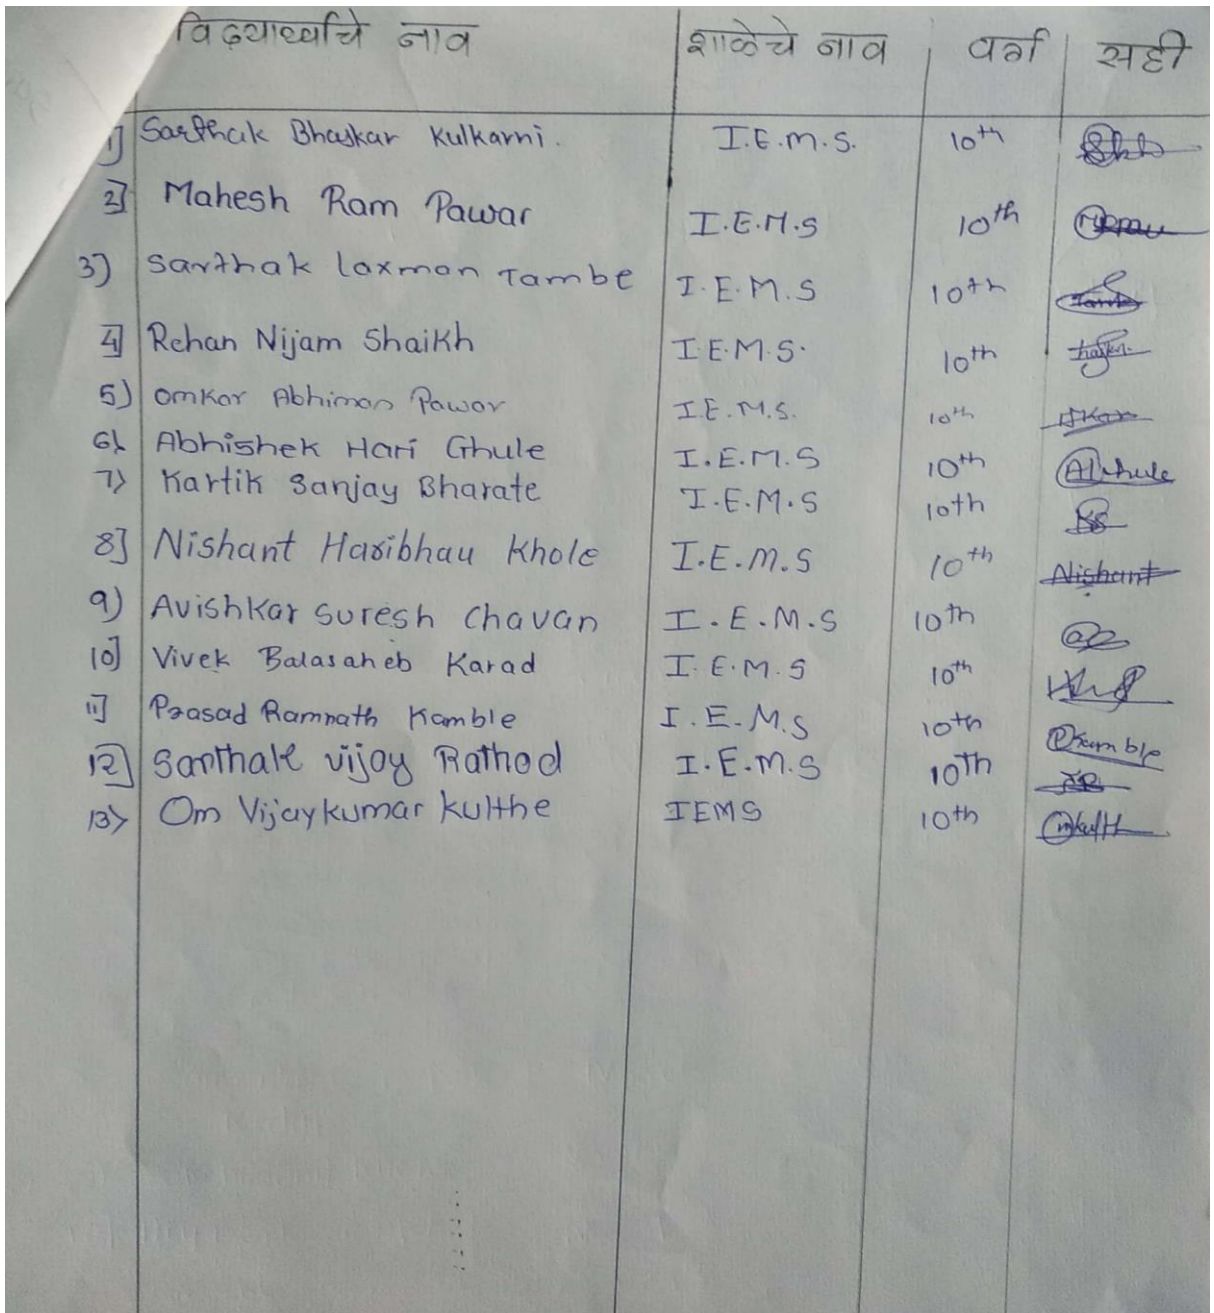 विद्यार्थ्याचे नाव शाळेचे नाव वर्ग सही
1] Sarthak Bhaskar Kulkarni. I.E.M.S. 10th
2] Mahesh Ram Pawar I.E.M.S 10th
3) Sarthak laxman Tambe I.E.M.S 10th
4] Rehan Nijam Shaikh I.E.M.S. 10th
5) Omkar Abhiman Pawar I.E.M.S. 10th
6) Abhishek Hari Ghule I.E.M.S 10th
7) Kartik Sanjay Bharate I.E.M.S 10th
8] Nishant Haribhau Khole I.E.M.S 10th Nishant
9) Avishkar Suresh Chavan I.E.M.S 10th
10] Vivek Balasaheb Karad I.E.M.S 10th
11] Prasad Ramnath Kamble I.E.M.S 10th Pkamble
12] Sarthak vijay Rathod I.E.M.S 10th
13) Om Vijaykumar Kulthe IEMS 10th